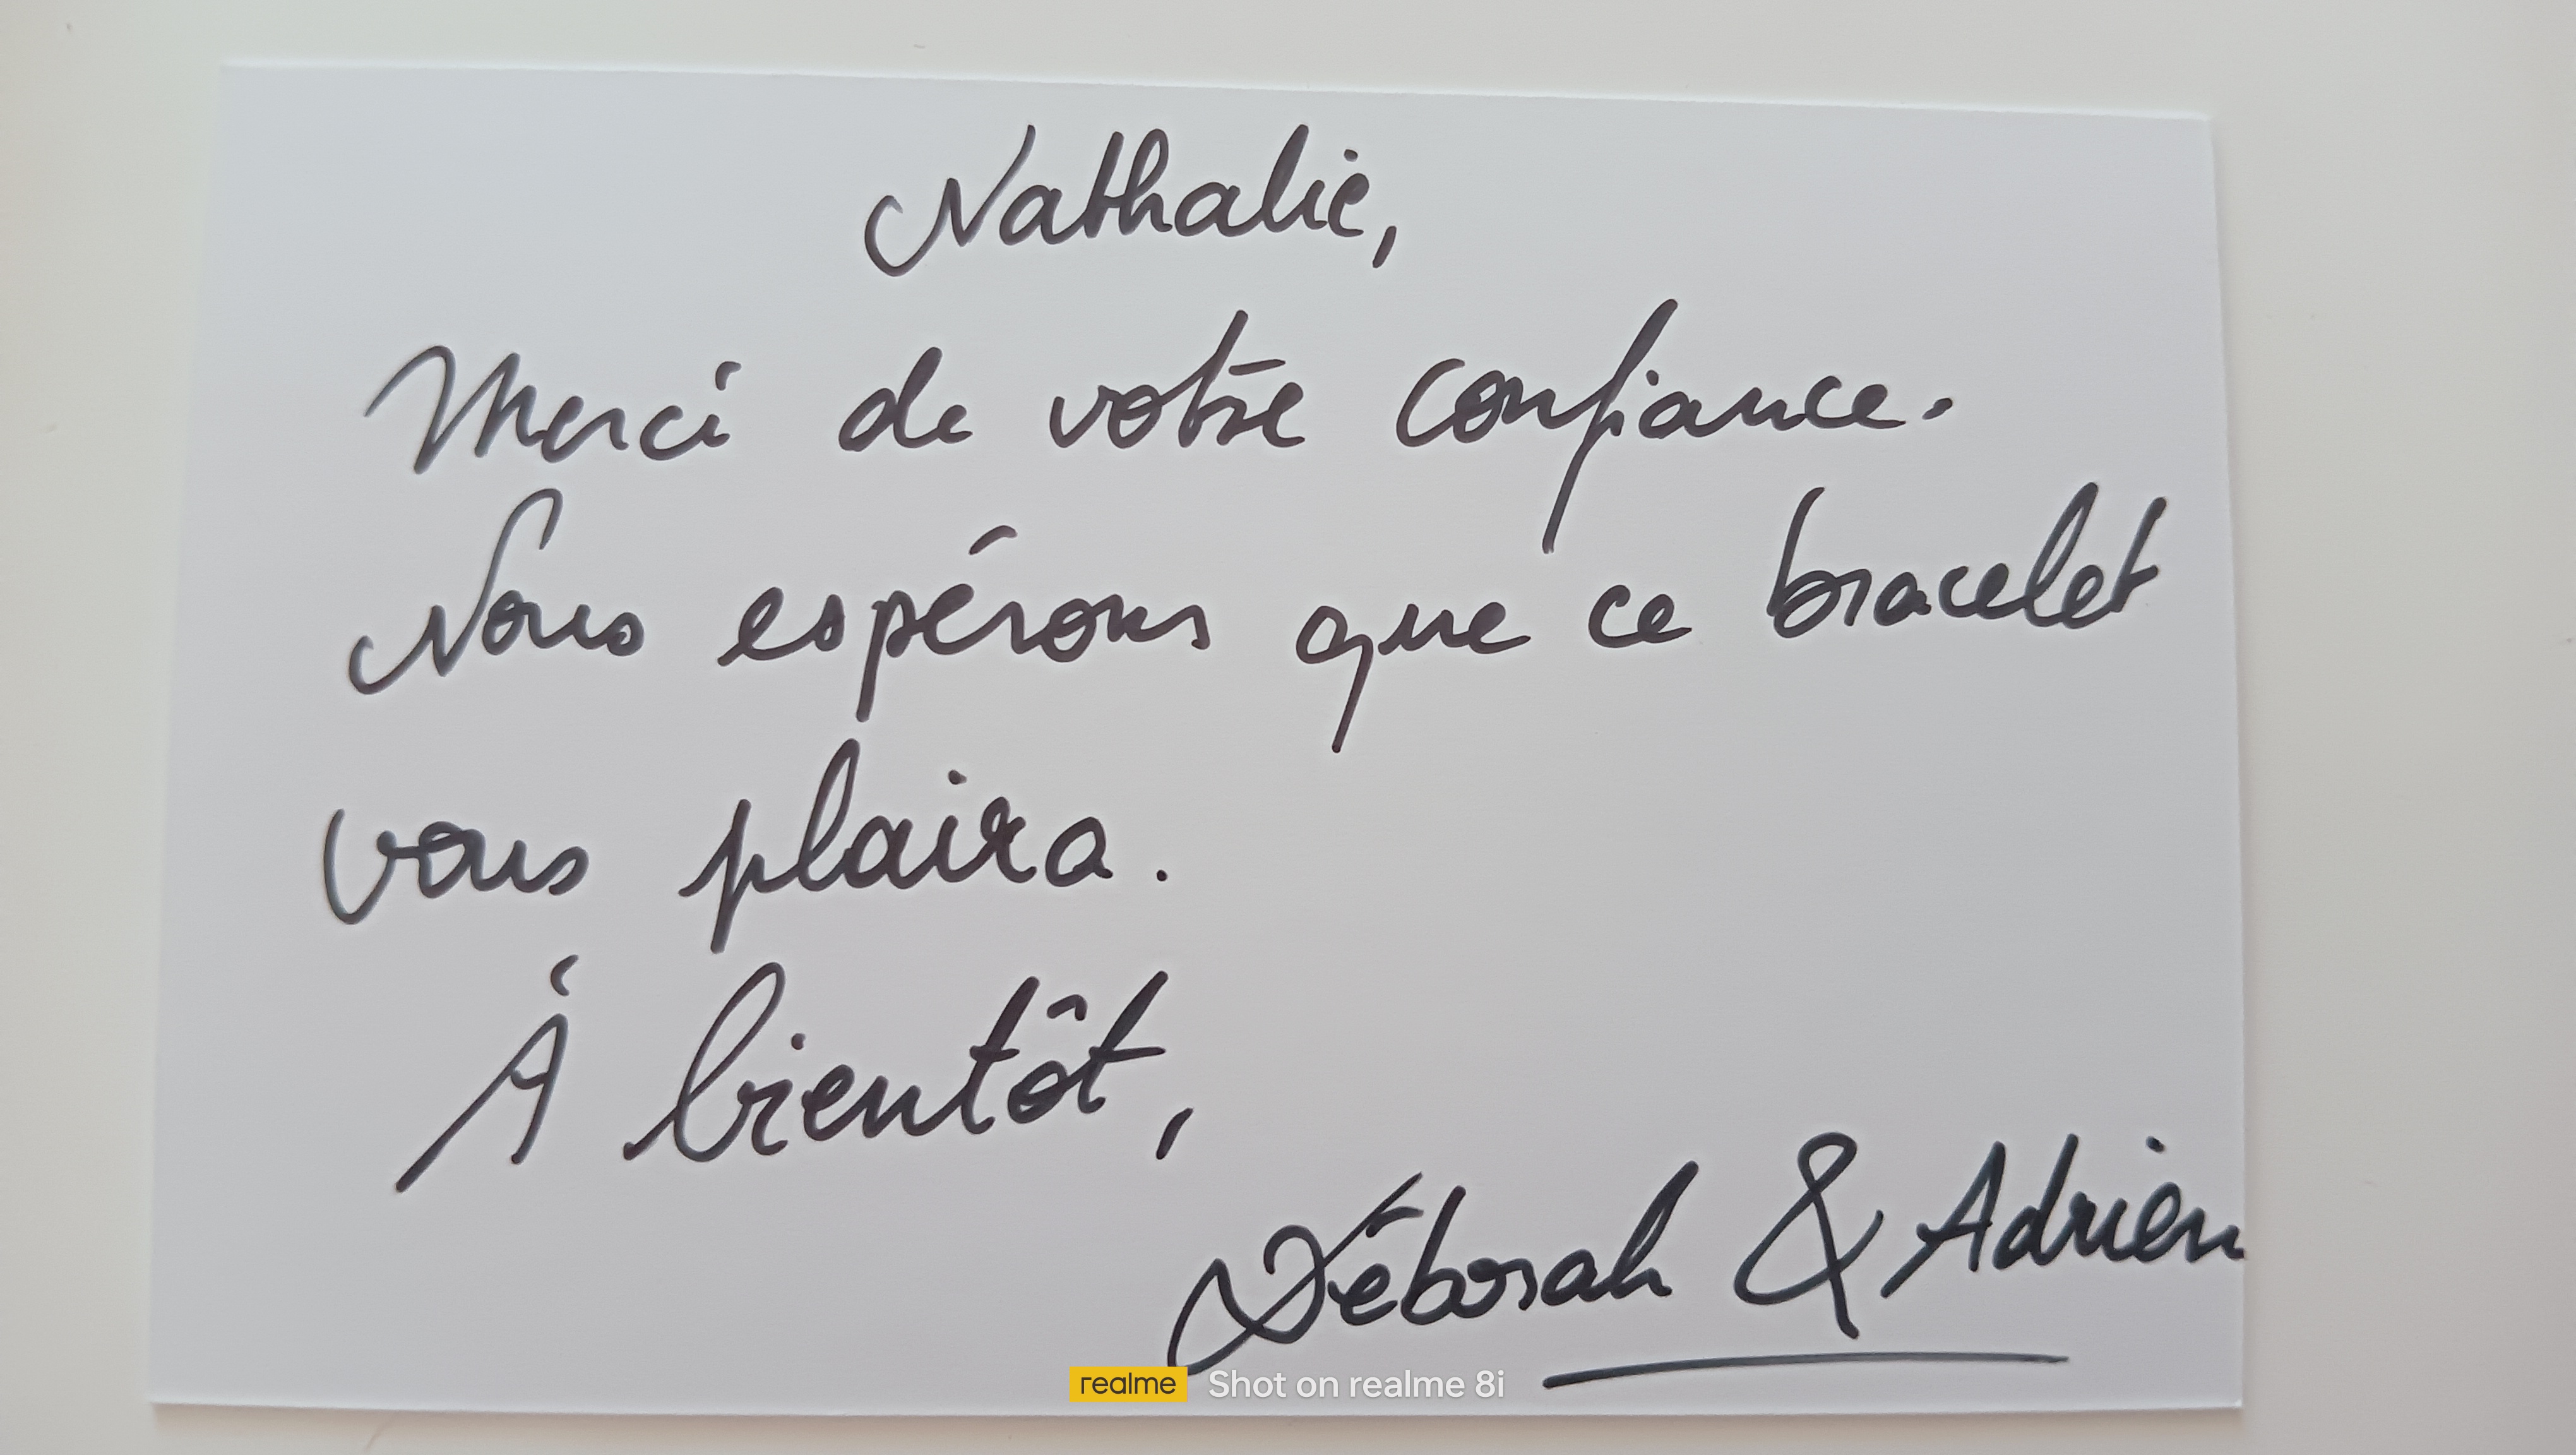 Nathalie,
Merci de votre confiance.
Nous espérons que ce bracelet
vous plaira.
À bientôt,
Déborah & Adrien
realme Shot on realme 8i